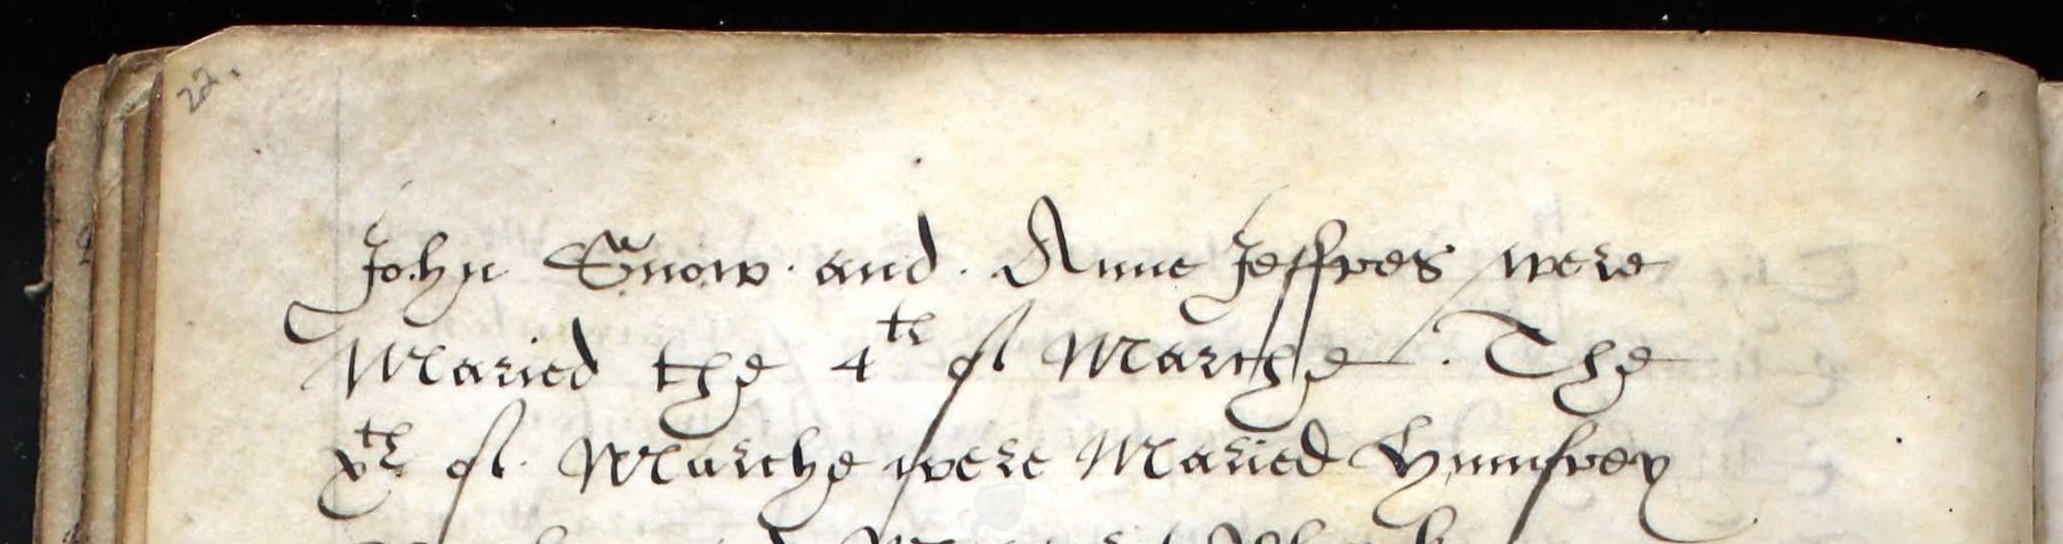 22.
John Snow. and. Anne Jeffres were
Maried the 4th of Marche. The
xth of. Marche were Maried Humfrey